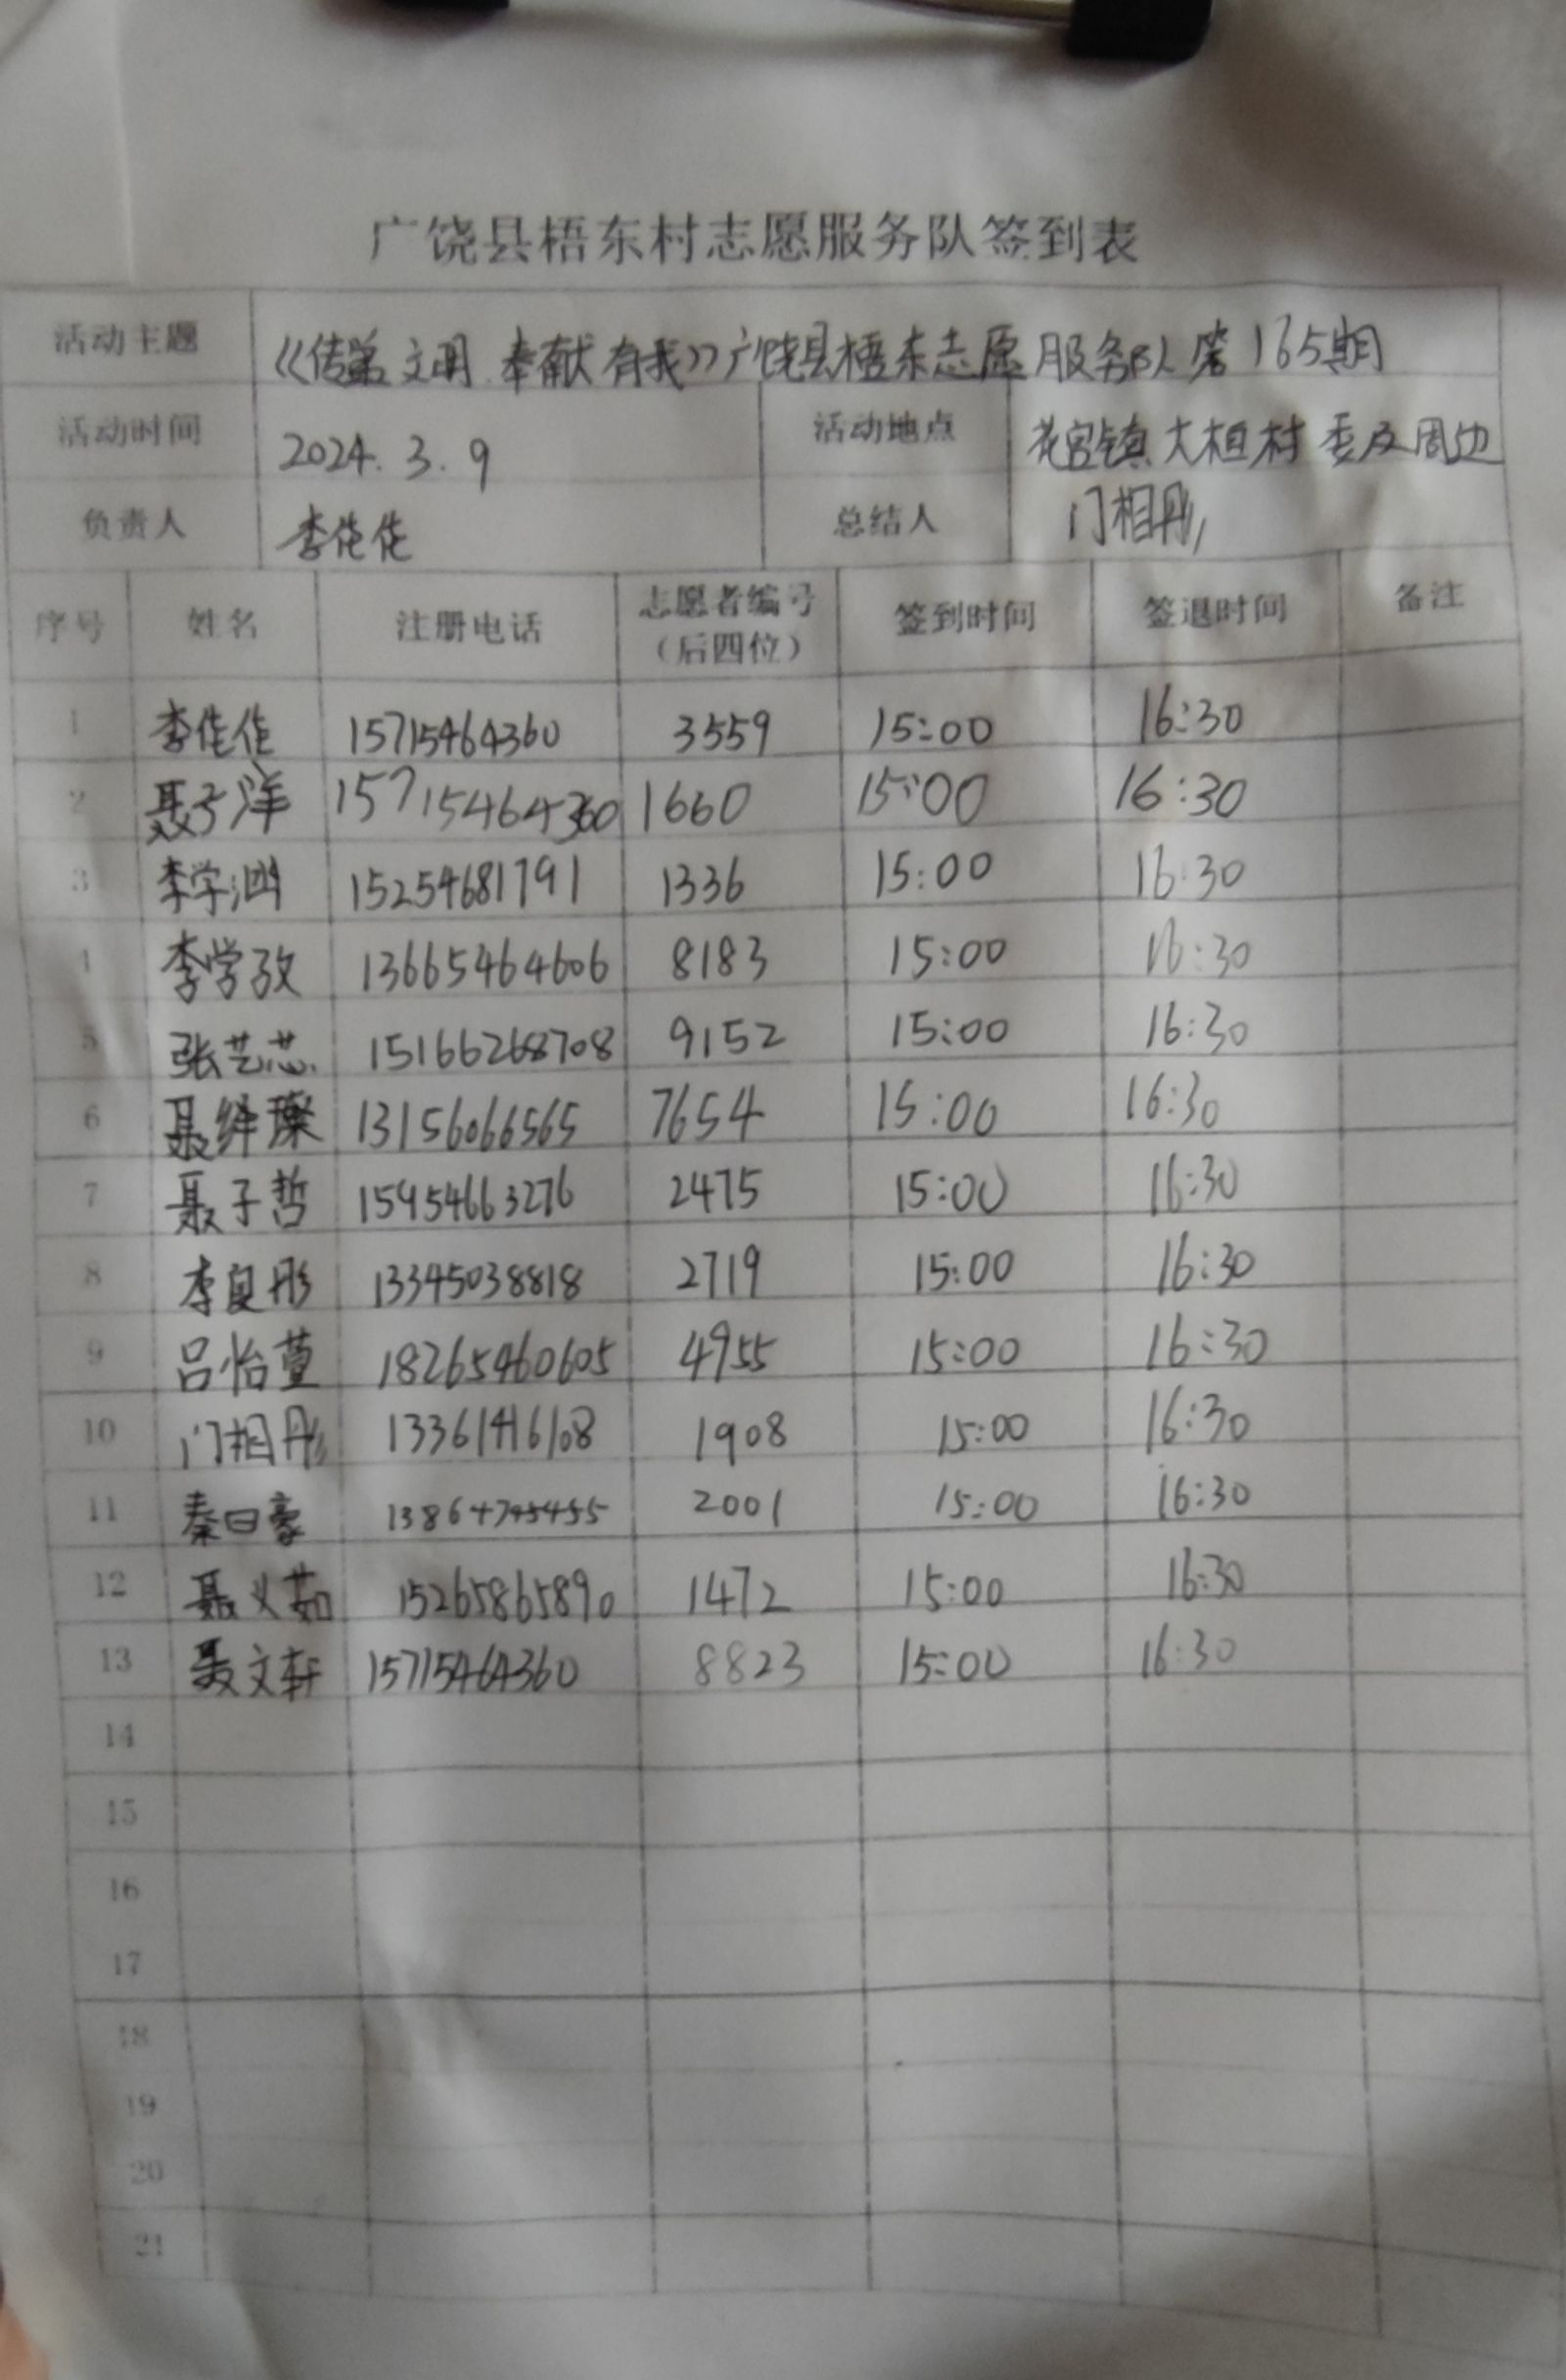 广饶县梧东村志愿服务队签到表
活动主题 《传递文明 奉献有我》广饶县梧东志愿服务队第165期
活动时间 2024.3.9 活动地点 花官镇大桓村委及周边
负责人 李佳佳 总结人 门相彤
序号 姓名 注册电话 志愿者编号（后四位） 签到时间 签退时间 备注
1 李佳佳 15715464360 3559 15:00 16:30
2 聂子洋 15715464360 1660 15:00 16:30
3 李学涵 15254681791 1336 15:00 16:30
4 李学孜 13665464606 8183 15:00 16:30
5 张艺芯 15166268708 9152 15:00 16:30
6 聂绎璨 13156066565 7654 15:00 16:30
7 聂子哲 15954663276 2475 15:00 16:30
8 李良彤 13345038818 2719 15:00 16:30
9 吕怡萱 18265460605 4955 15:00 16:30
10 门相彤 13361416108 1908 15:00 16:30
11 秦日豪 13864745455 2001 15:00 16:30
12 聂义茹 15265865890 1472 15:00 16:30
13 聂文轩 15715464360 8823 15:00 16:30
14
15
16
17
18
19
20
21